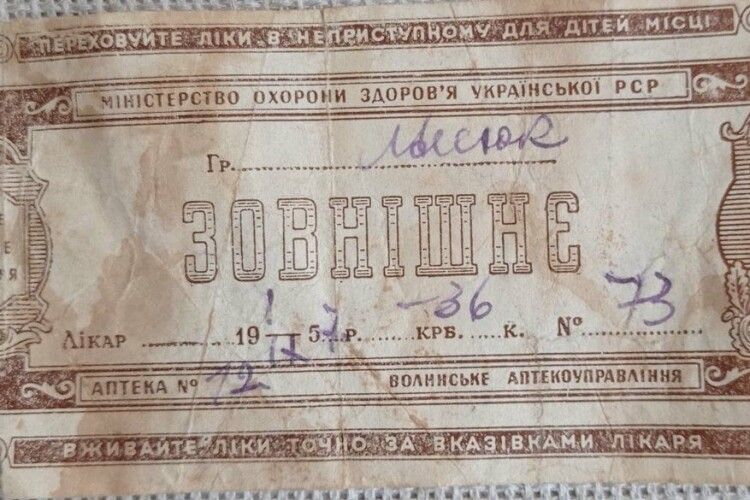 ПЕРЕХОВУЙТЕ ЛІКИ В НЕПРИСТУПНОМУ ДЛЯ ДІТЕЙ МІСЦІ
МІНІСТЕРСТВО ОХОРОНИ ЗДОРОВ'Я УКРАЇНСЬКОЇ РСР
Гр. Мысюк
ЗОВНІШНЄ
Лікар 19 57 р. –36 крб. к. № 73
АПТЕКА № 12 ВОЛИНСЬКЕ АПТЕКОУПРАВЛІННЯ
ВЖИВАЙТЕ ЛІКИ ТОЧНО ЗА ВКАЗІВКАМИ ЛІКАРЯ